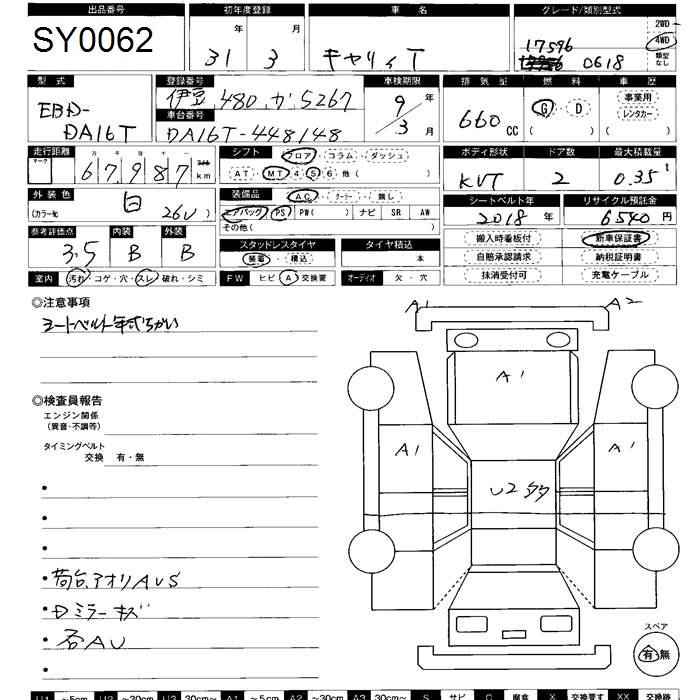 出品番号 初年度登録 車名 グレード/類別型式
SY0062 31年 3月 キャリィT 17596 0618 2WD 4WD 類型なし
型式 登録番号 車検期限 排気量 燃料 車歴
EBD-DA16T 伊豆 480 か 5267 9年 3月 660cc G・D ( ) 事業用 レンタカー ( )
車台番号
DA16T-448148
走行距離 シフト フロア・コラム・ダッシュ ボディ形状 ドア数 最大積載量
マーク 十万 万 千 百 十 一 マイル km
67,987 AT・MT 4 5 6 他( ) KVT 2 0.35t
外装色 装備品 AC・クーラー・無し シートベルト年 リサイクル預託金
(カラーNo) 白 26U エアバッグ PS PW( ) ナビ SR AW 2018年 6540円
その他( )
参考評価点 内装 外装 スタッドレスタイヤ タイヤ積込 搬入時看板付 新車保証書
3.5 B B 装着・積込 本 自賠承認請求 納税証明書
室内 汚れ・コゲ・穴・スレ・破れ・シミ FW ヒビ A 交換要 オーディオ 欠・穴 抹消受付可 充電ケーブル
◎注意事項
シートベルト年式ちがい
A1 A2
A1
◎検査員報告
エンジン関係
(異音・不調等)
タイミングベルト
交換 有・無
A1 A1
U2多
・荷台、アオリAUS
・Dミラーキズ
・各AU
スペア
有 無
U1 ~5cm U2 ~30cm U3 30cm~ A1 ~5cm A2 ~30cm A3 30cm~ S サビ C 腐食 X 交換要す XX 交換跡